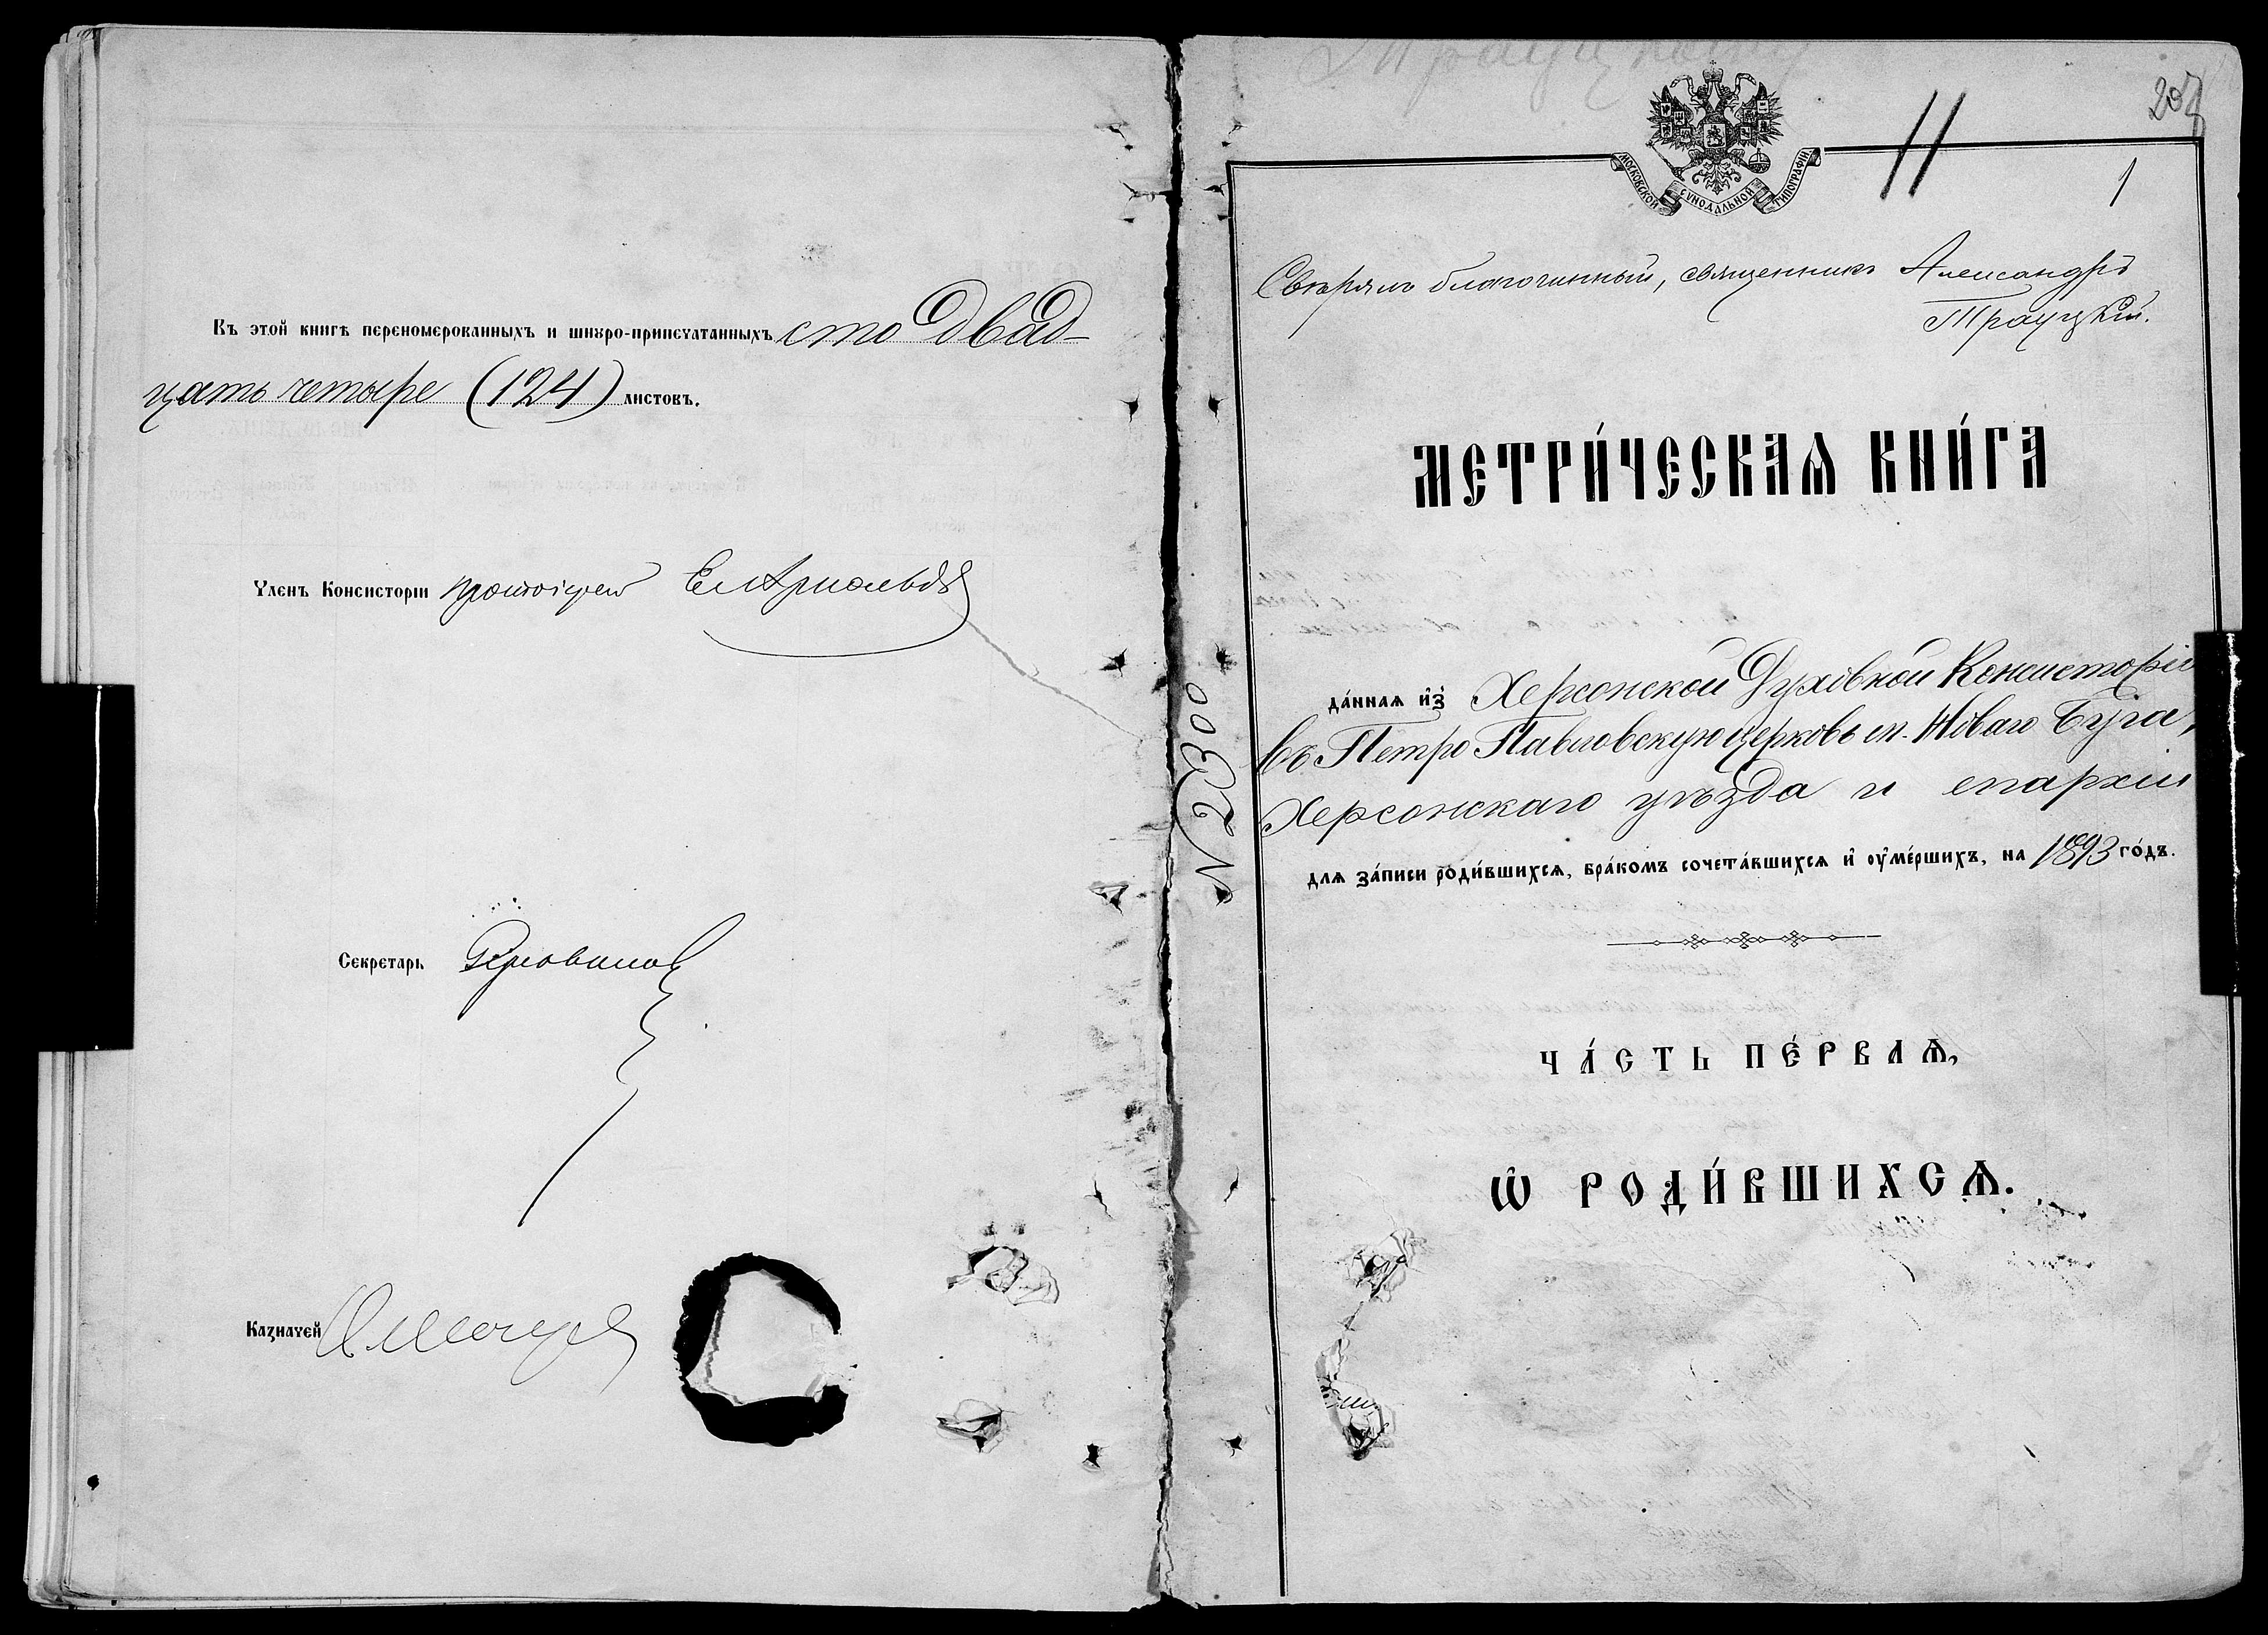 Въ этой книгѣ перенѡмерованныхъ и шнуро-припечатанныхъ сто двад-
цать четыре (124) листовъ.
Членъ Консисторіи протоіерей
Секретарь
Казначей
207
МОСКОВСКОЙ СѴНОДАЛЬНОЙ ТИПОГРАФІИ
11
1
Свѣрялъ благочинный, священникъ Александръ
Трауцкій.
МЕТРИ́ЧЕСКАѦ КНИ́ГА
да́ннаѧ и҆з̾ Херсонской Духовной Консисторіи
въ Петро Павловскую церковь м. Новаго Буга,
Херсонскаго уѣзда и епархіи
для за́писи роди́вшихсѧ, бра́комъ сочета́вшихсѧ и҆ оу҆ме́ршихъ, на 1893 го́дъ.
N 2300
ЧА́СТЬ ПЕ́РВАѦ,
Ѡ҆ РОДИ́ВШИХСѦ.